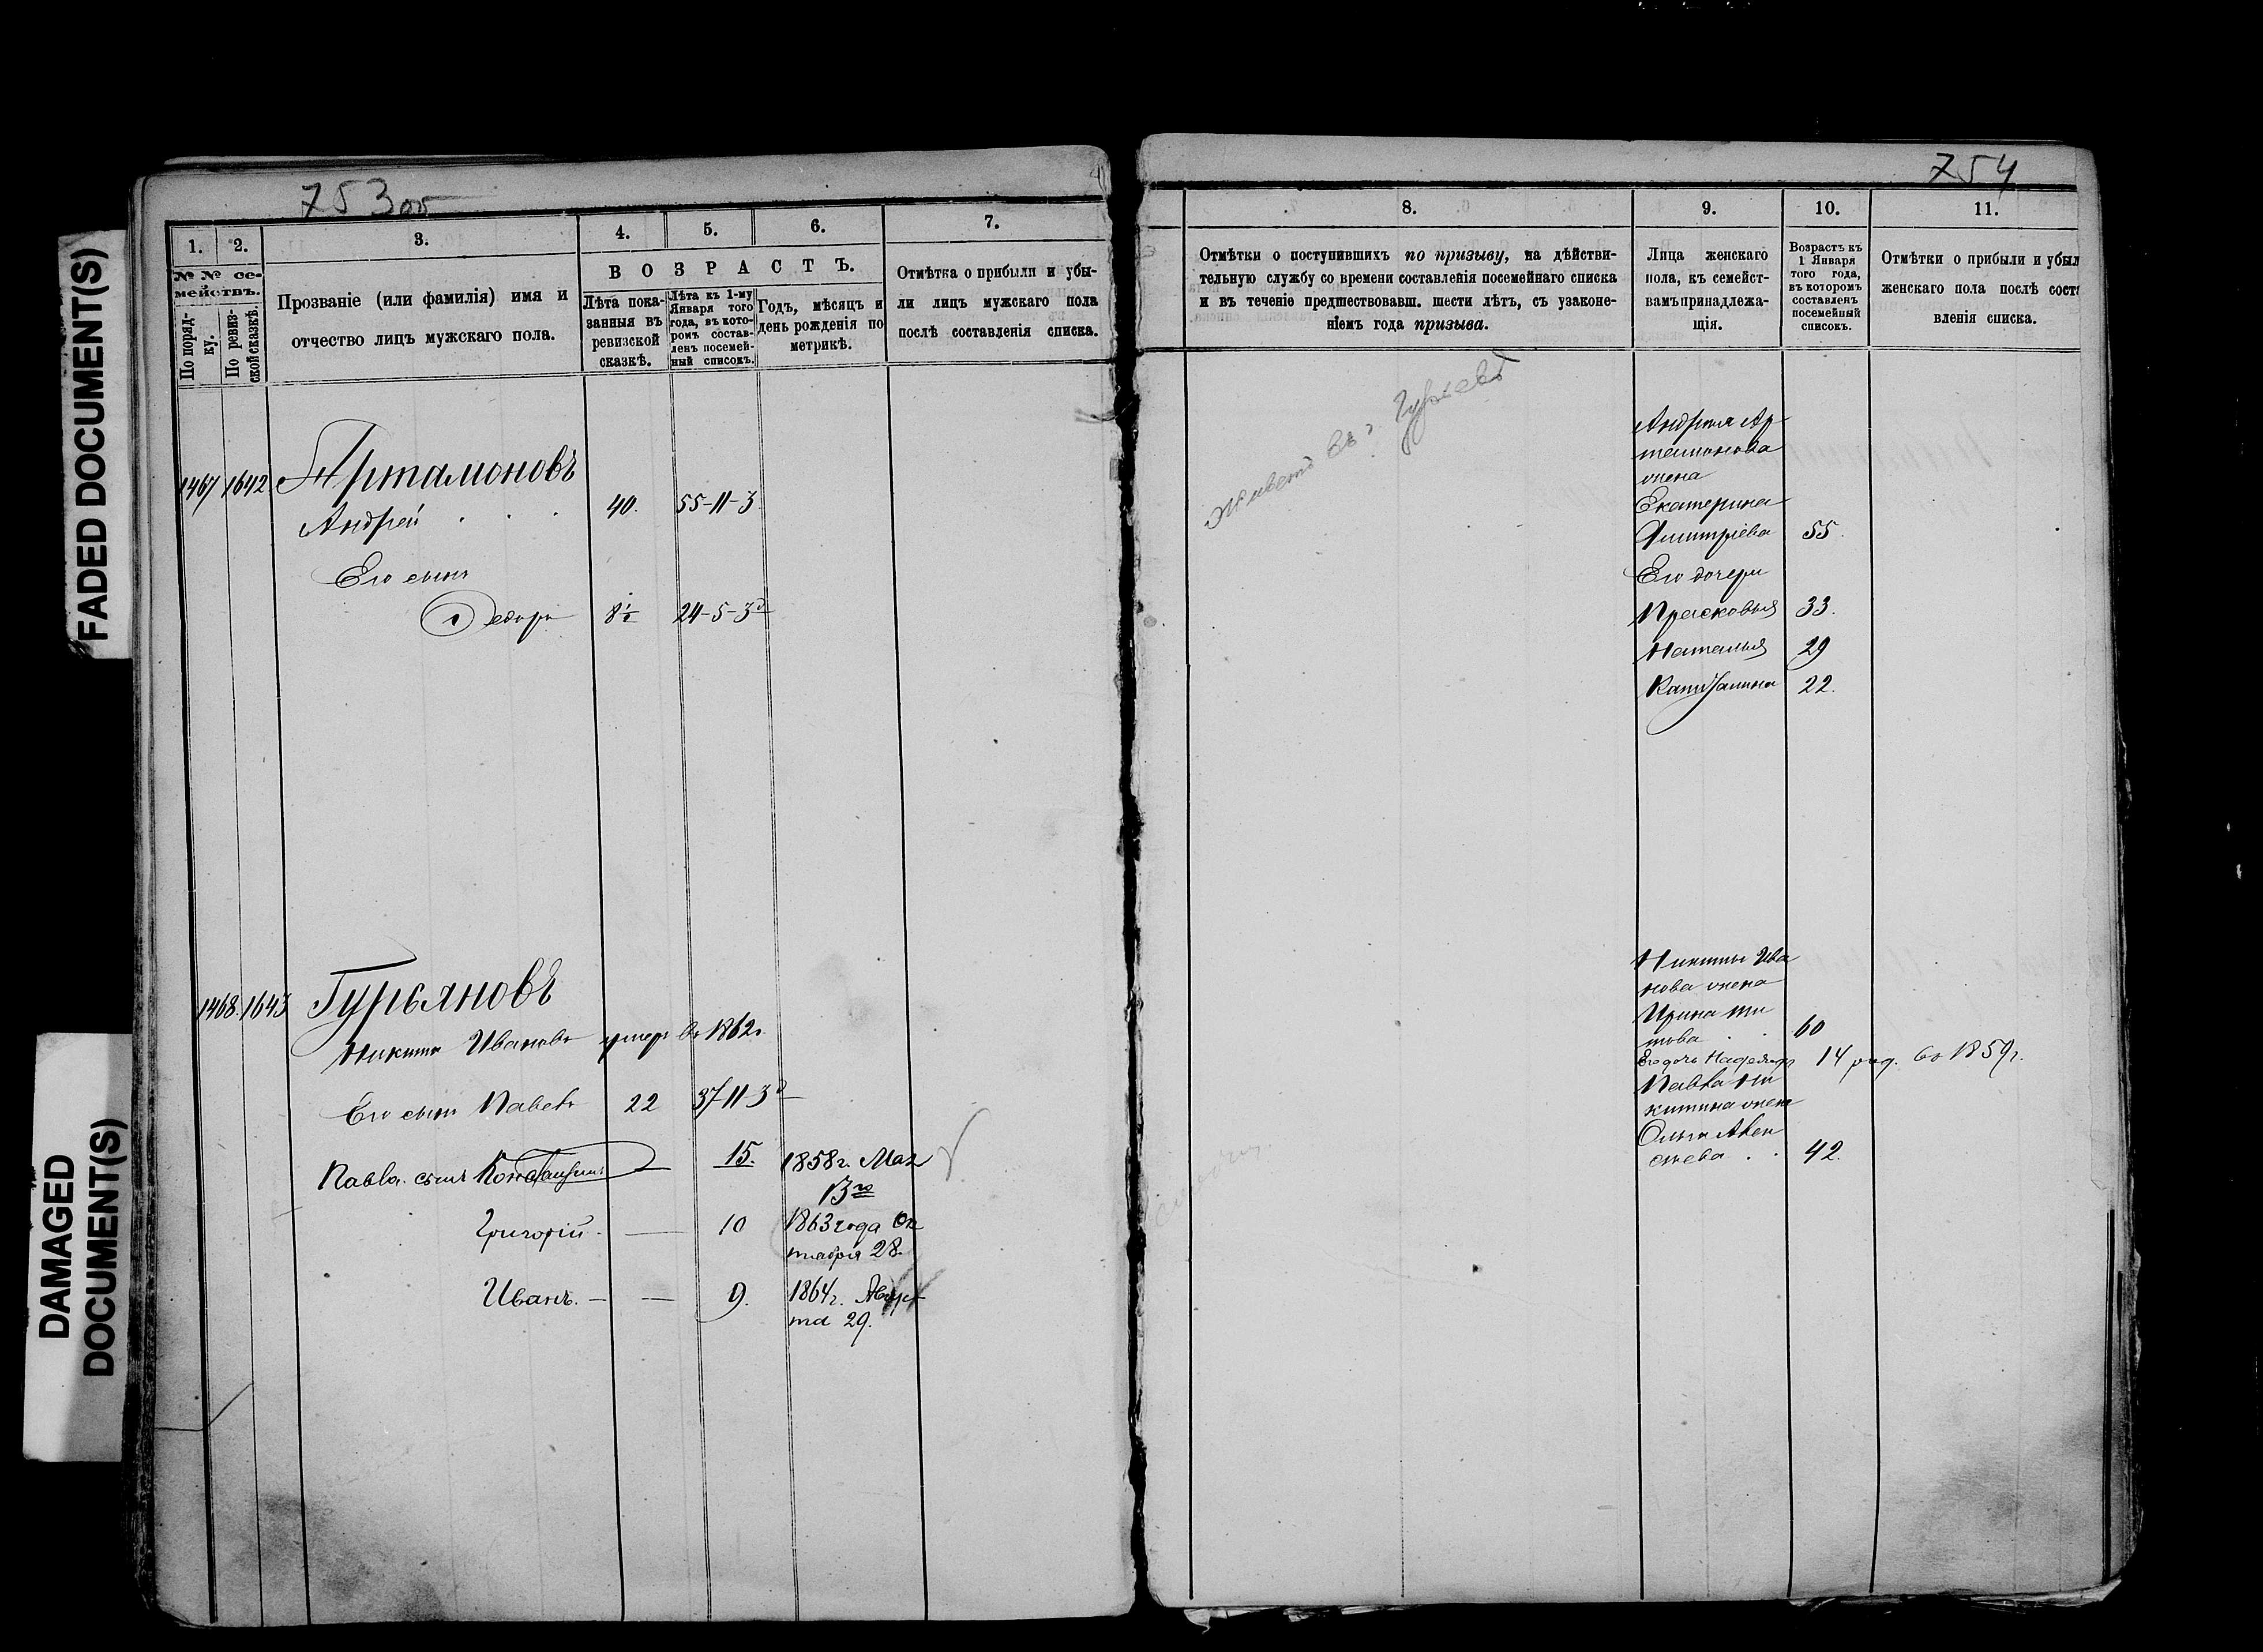 FADED DOCUMENT(S)
DAMAGED
DOCUMENT(S)
753об
1.
2.
3.
4.
5.
6.
7.
№ № се-
мействъ.
По поряд-
ку.
По ревиз-
ской сказкѣ.
Прозваніе (или фамилія) имя и
отчество лицъ мужскаго пола.
ВОЗРАСТЪ.
Лѣта пока-
занныя въ
ревизской
сказкѣ.
Лѣта къ 1-му
Января того
года, въ кото-
ромъ состав-
ленъ посемей-
ный списокъ.
Годъ, мѣсяцъ и
день рожденія по
метрикѣ.
Отмѣтка о прибыли и убы-
ли лицъ мужскаго пола
послѣ составленія списка.
1467 1642 Артамоновъ
Андрей 40. 55-11-3
Его сынъ
Федоръ 8½ 24-5-3
1468. 1643 Гурьяновъ
Никита Ивановъ умеръ въ 1862г.
Его сынъ Павелъ 22 37-11-3
Павла сынъ Константинъ — 15. 1858г. Мая
13го
Григорій. — 10 1863 года Ок
тября 28.
Иванъ. — — 9. 1864г. Авгус
та 29.
754
8.
9.
10.
11.
Отмѣтки о поступившихъ по призыву, на дѣйстви-
тельную службу со времени составленія посемейнаго списка
и въ теченіе предшествовавш. шести лѣтъ, съ узаконе-
ніемъ года призыва.
Лица женскаго
пола, къ семейст-
вамъ принадлежа-
щія.
Возрастъ къ
1 Января
того года,
въ которомъ
составленъ
посемейный
списокъ.
Отмѣтки о прибыли и убыл
женскаго пола послѣ сост
вленія списка.
живетъ въ г. Гурьевѣ
Андрея Ар
тамонова
жена
Екатерина
Дмитріева 55.
Его дочери
Прасковья 33.
Наталья 29
Катерина 22.
Никиты Ива
нова жена
Ирина Ти
това . . 60
Его дочь Надежда 14 выд. въ 1859г.
Павла Ни
китина жена
Ольга Алек
сѣева . . 42.